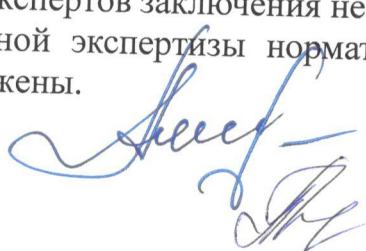 кспертов заключения не
ной экспертизы нормат
жены.